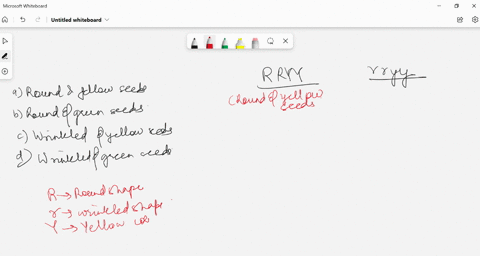 Microsoft Whiteboard
Untitled whiteboard
a) Round & yellow seeds
b) Round & green seeds
c) Wrinkled & yellow seeds
d) Wrinkled & green seeds
RRYY
(Round & yellow
seeds
rryy
R → Round shape
r → wrinkled shape
Y → Yellow